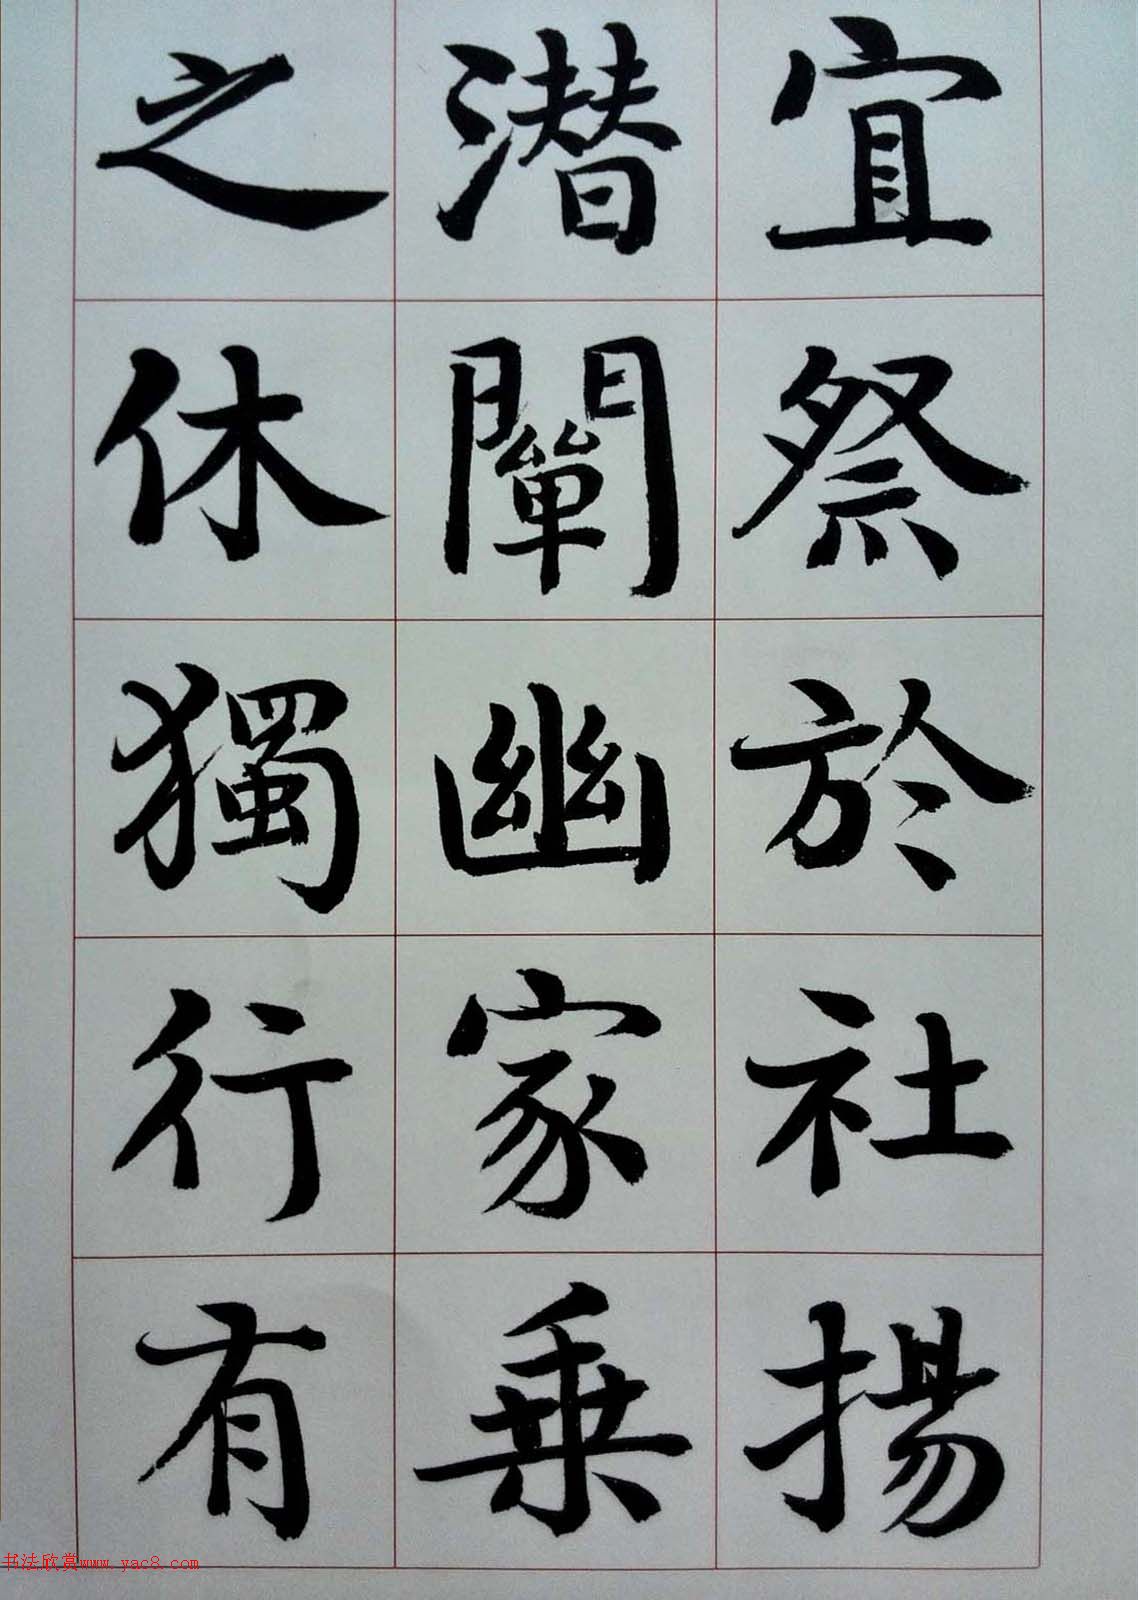 宜祭於社揚
潜闡幽家乗
之休獨行有
书法欣赏www.yac8.com